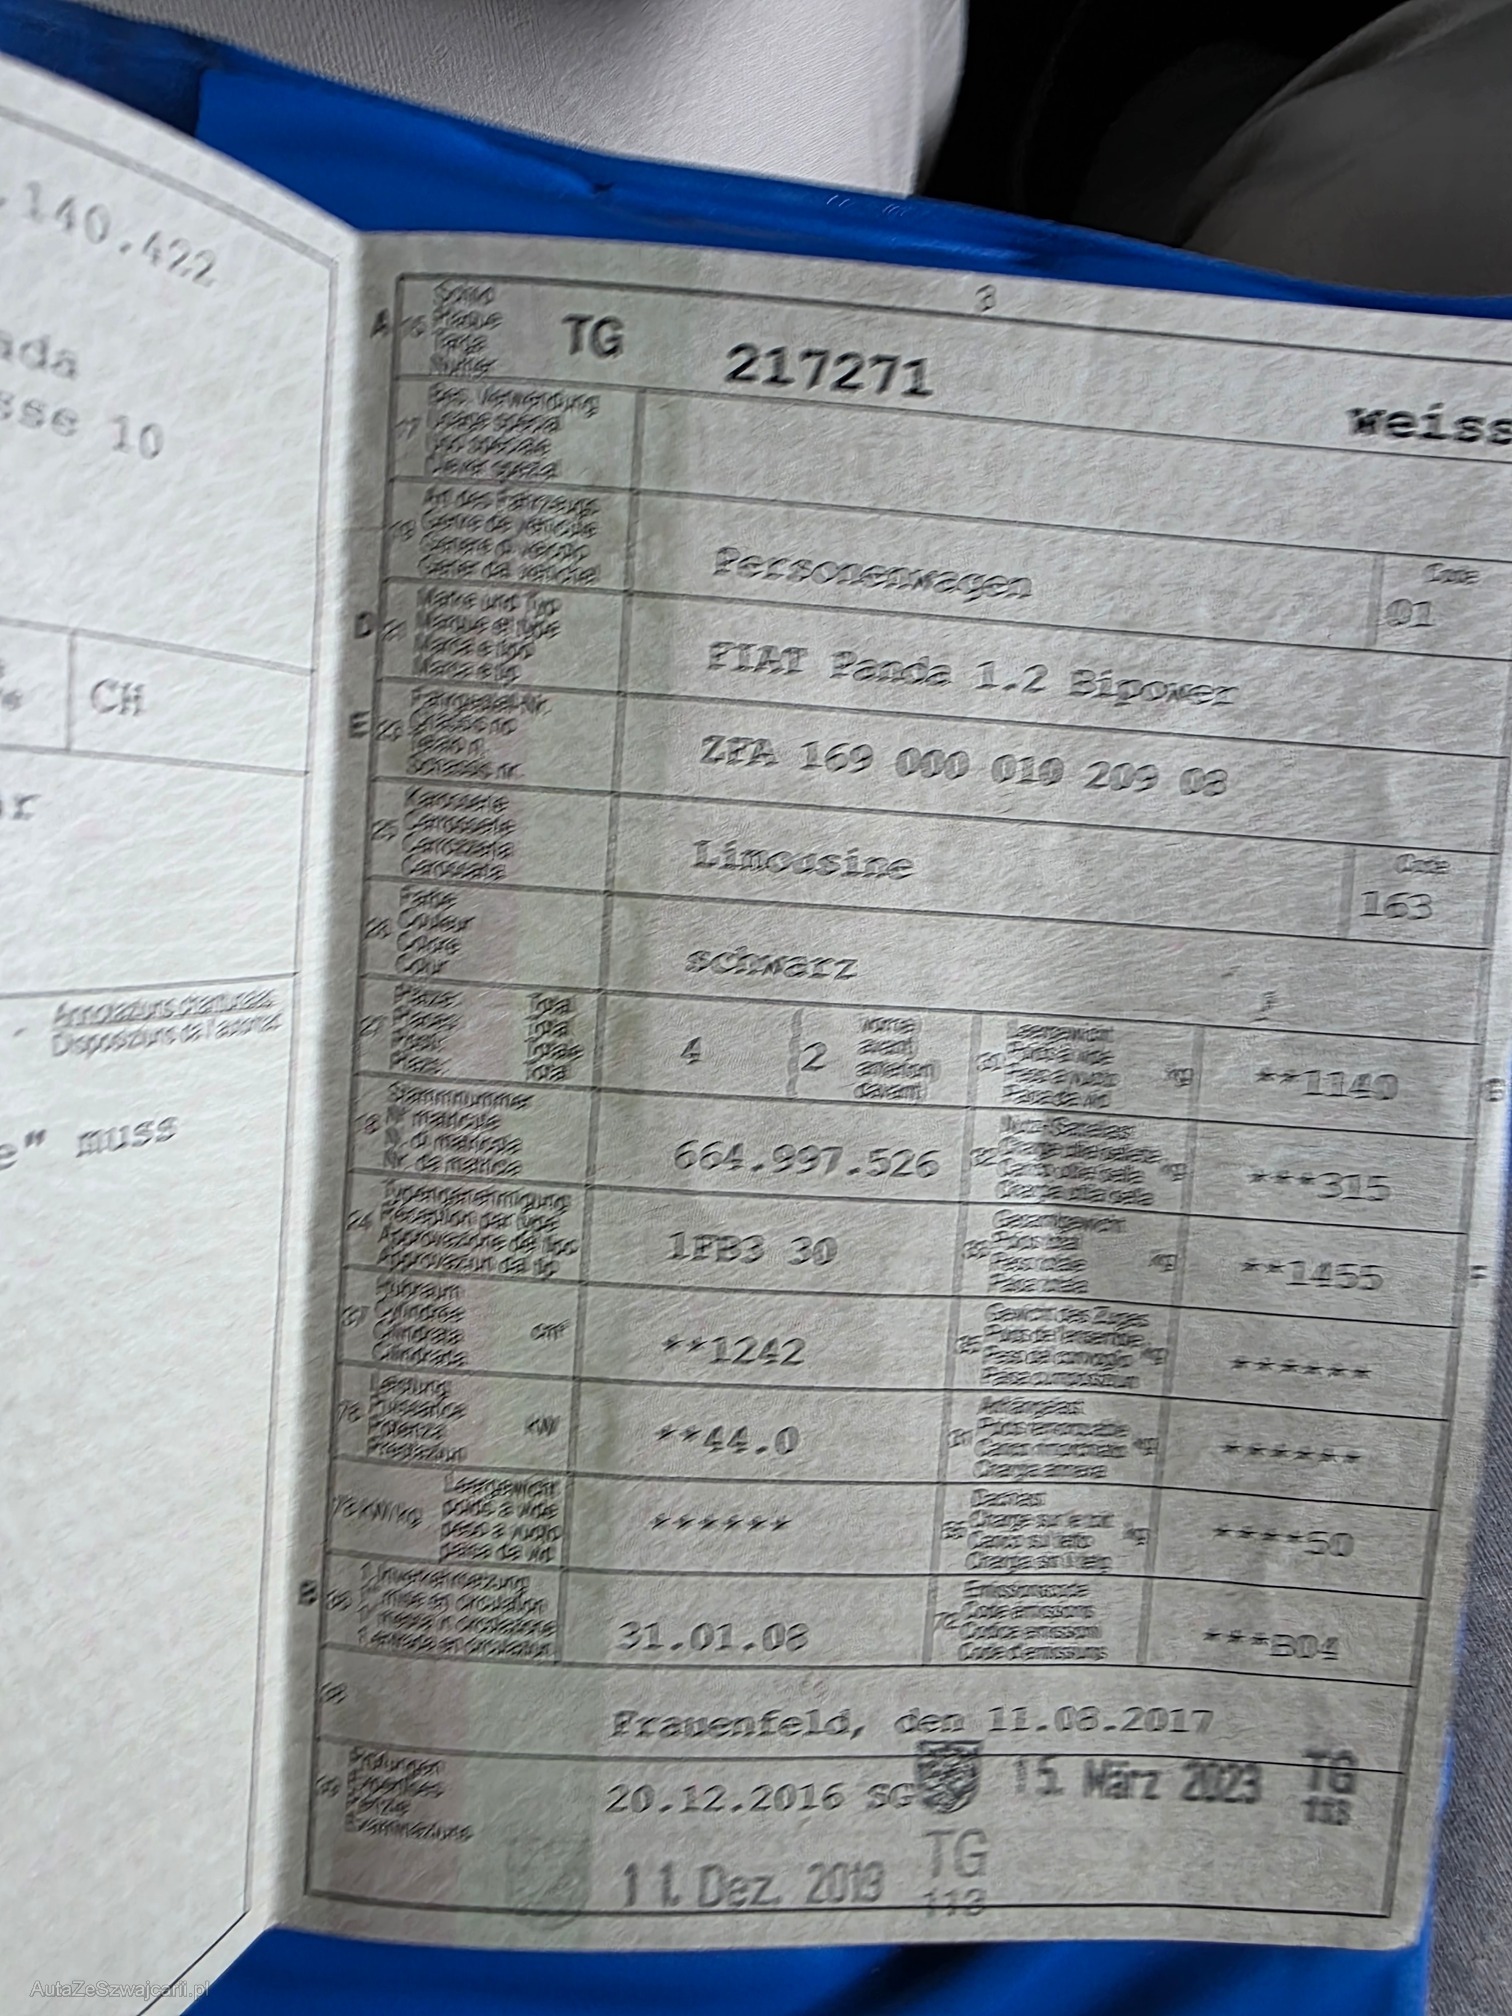 .140.422
sse 10
CH
Annotaziuns chantunalas
Disposiziuns da l'autoritad
e" muss
3
A 15 Schild
Plaque
Targa
Numer
TG 217271 weiss
17 Bes. Verwendung
Usage spécial
Uso speciale
Diever spezial
19 Art des Fahrzeugs
Genre de véhicule
Genere di veicolo
Gener da vehichel
Personenwagen
Code
01
D 21 Marke und Typ
Marque et type
Marca e tipo
Marca e tip
FIAT Panda 1.2 Bipower
E 23 Fahrgestell-Nr.
Châssis no
Telaio n.
Schassis nr.
ZFA 169 000 010 209 08
25 Karosserie
Carrosserie
Carrozzeria
Carossaria
Limousine
Code
163
26 Farbe
Couleur
Colore
Colur
schwarz
27 Plätze: Total
Places: Total
Posti: Totale
Plazs: Total
4
2 vorne
avant
anteriori
davant
Leergewicht
Poids à vide
Peso a vuoto
Paisa da vid
kg
**1140
18 Stammnummer
N° matricule
N. di matricola
Nr. da matricla
664.997.526
32 Nutz-/Sattellast
kg
***315
24 Typengenehmigung
Réception par type
Approvazione del tipo
Approvaziun dal tip
1FB3 30
33 Gesamtgewicht
Poids total
Peso totale
Paisa totala
kg
**1455
37 Hubraum
Cylindrée
Cilindrata
Cilindrada
cm³
**1242
35 Gewicht des Zuges
Poids de l'ensemble
Peso del convoglio
Paisa cumposiziun
kg
******
76 Leistung
Puissance
Potenza
Prestaziun
kW
**44.0
31 Anhängelast
Poids remorquable
Carico rimorchiato
Chargia annexa
kg
******
78 kW/kg
Leergewicht
poids à vide
peso a vuoto
paisa da vid
******
55 Dachlast
Charge sur le toit
Carico sul tetto
Chargia sin il tetg
kg
****50
B 36 1. Inverkehrsetzung
1re mise en circulation
1a messa in circolazione
1. entrada en circulaziun
31.01.08
72 Emissionscode
Code émissions
Codice emissioni
Code d'emissiuns
***B04
38
Frauenfeld, den 11.08.2017
39 Prüfungen
Expertises
Perizie
Examinaziuns
20.12.2016 SG
15. März 2023
TG
113
11. Dez. 2019
TG
113
AutaZeSzwajcarii.pl